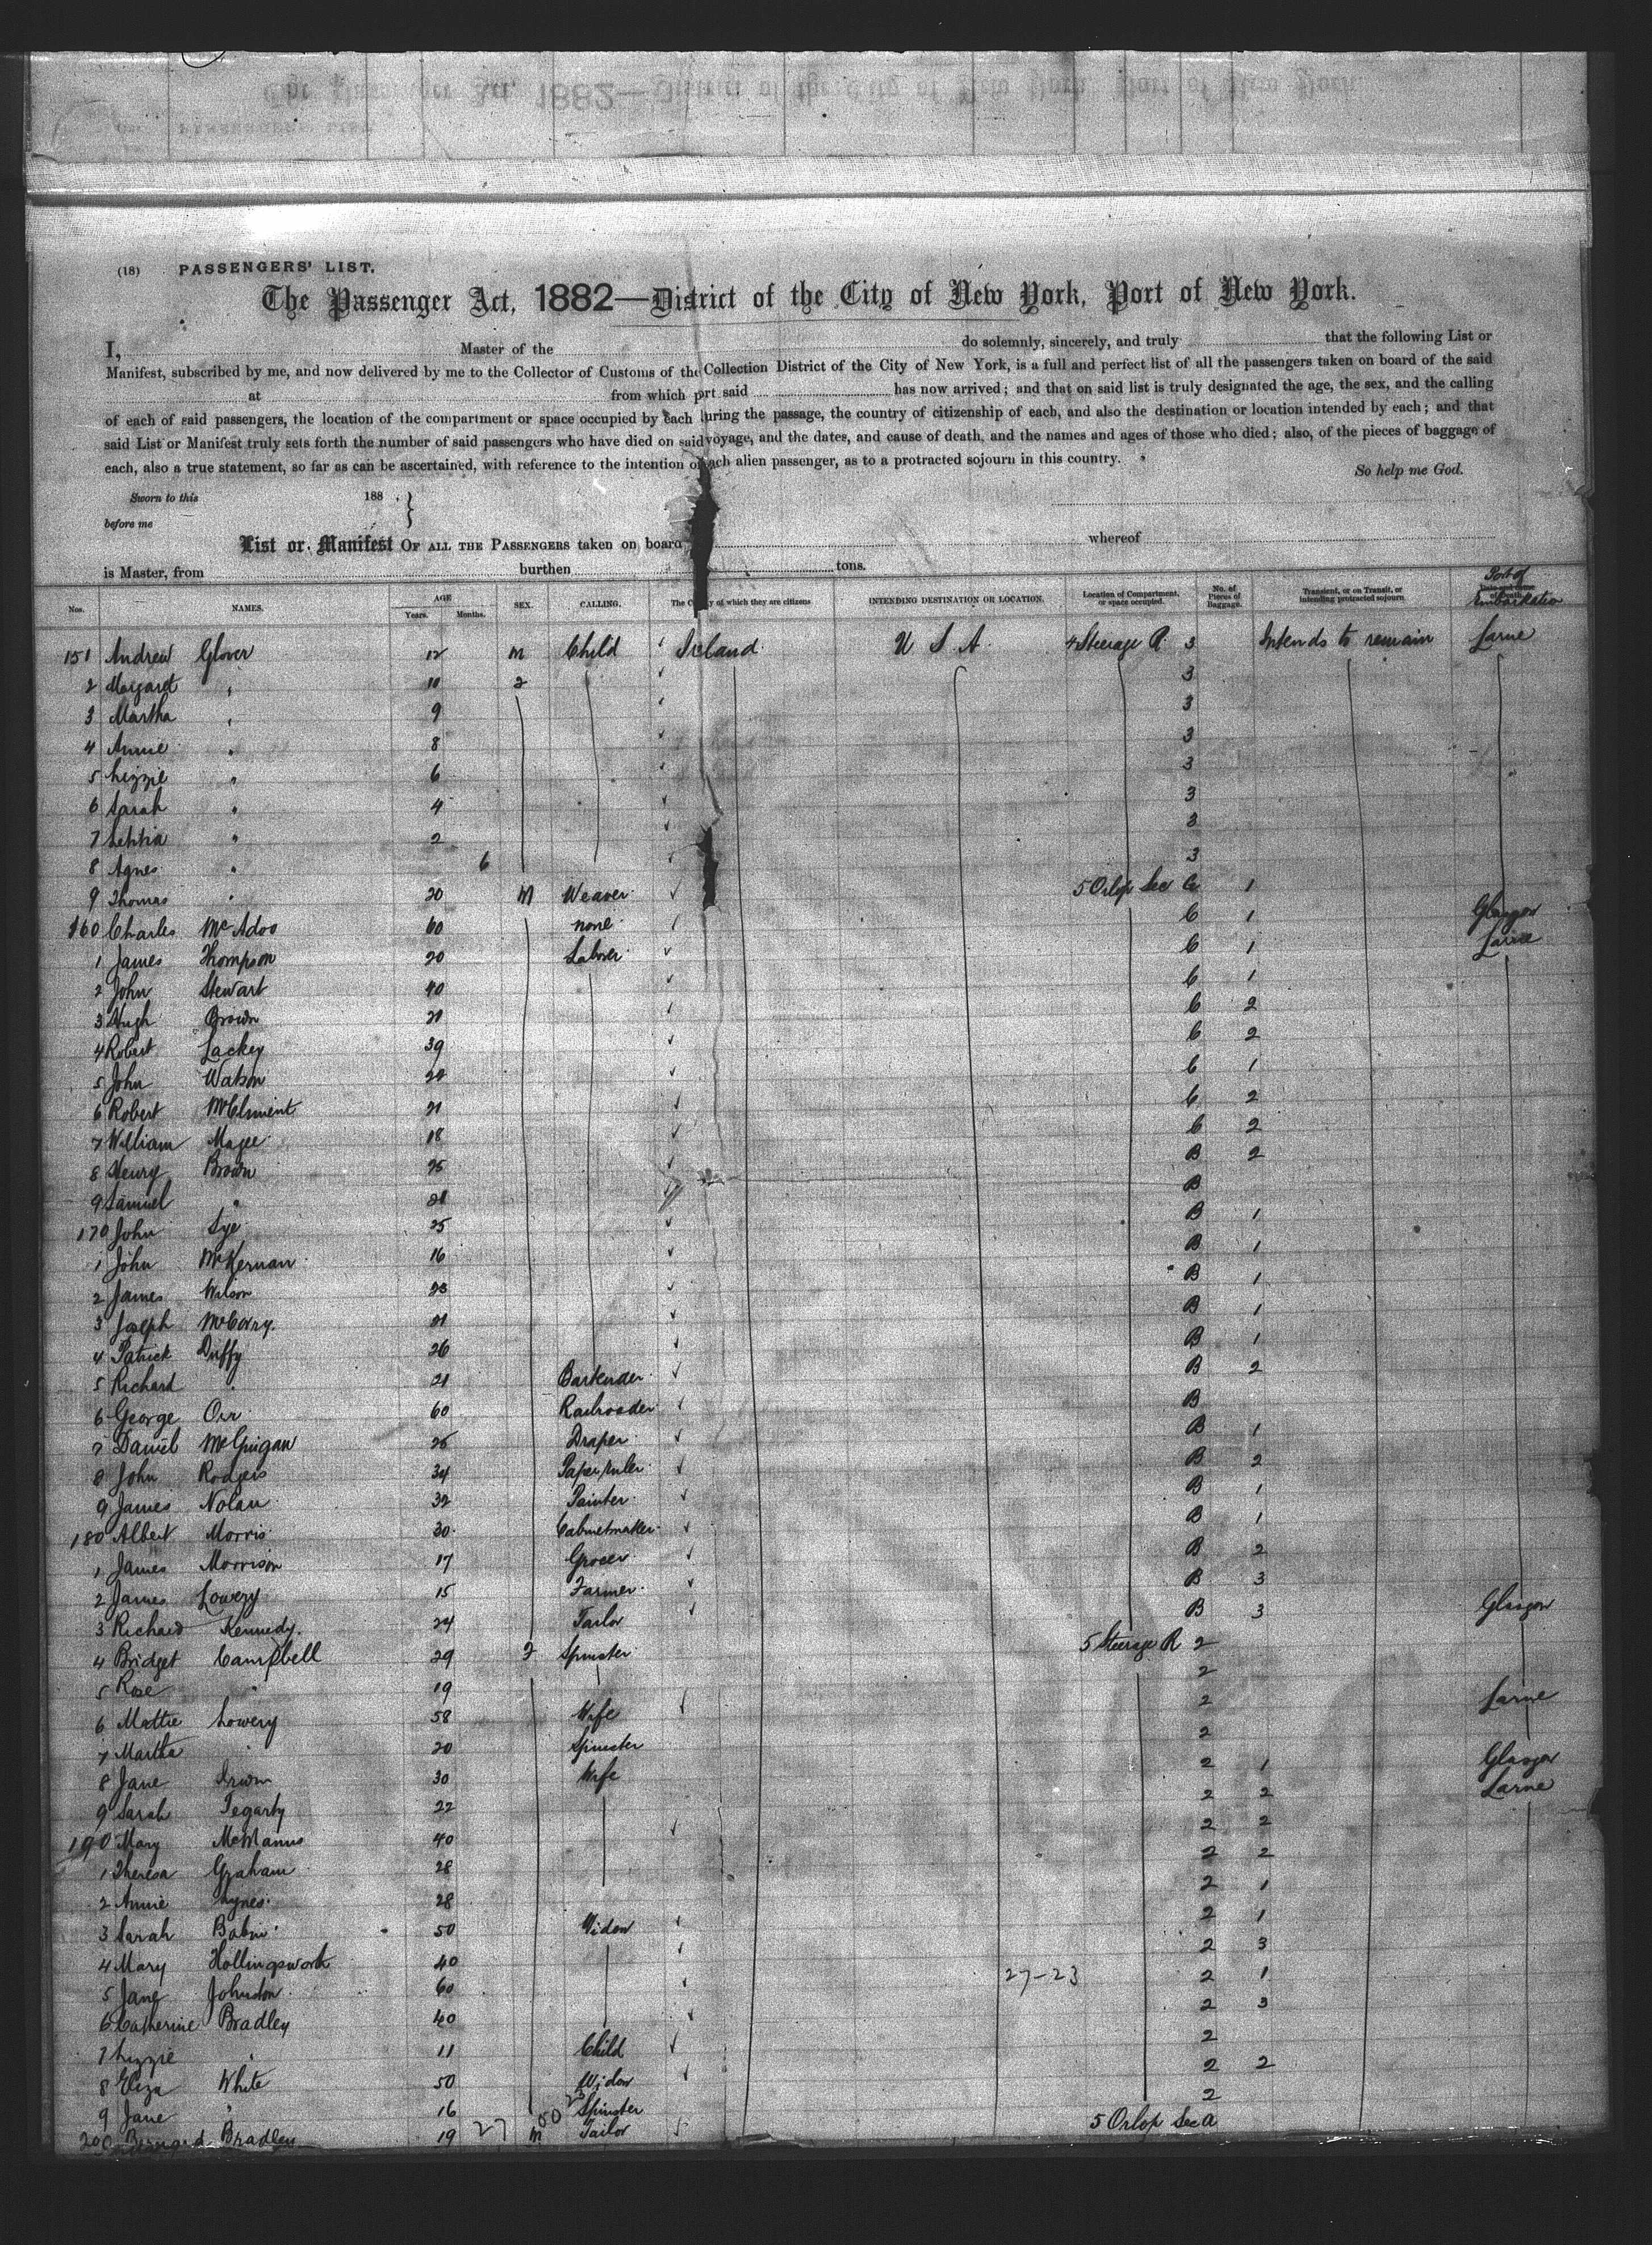 (18) PASSENGERS' LIST.
The Passenger Act, 1882—District of the City of New York, Port of New York.
I, Master of the do solemnly, sincerely, and truly that the following List or
Manifest, subscribed by me, and now delivered by me to the Collector of Customs of the Collection District of the City of New York, is a full and perfect list of all the passengers taken on board of the said
at from which port said has now arrived; and that on said list is truly designated the age, the sex, and the calling
of each of said passengers, the location of the compartment or space occupied by each during the passage, the country of citizenship of each, and also the destination or location intended by each; and that
said List or Manifest truly sets forth the number of said passengers who have died on said voyage, and the dates, and cause of death, and the names and ages of those who died; also, of the pieces of baggage of
each, also a true statement, so far as can be ascertained, with reference to the intention of each alien passenger, as to a protracted sojourn in this country.
So help me God.
Sworn to this 188 .
before me
List or Manifest OF ALL THE PASSENGERS taken on board whereof
is Master, from burthen tons.
Nos. NAMES. AGE Years. Months. SEX. CALLING. The Country of which they are citizens INTENDING DESTINATION OR LOCATION. Location of Compartment, or space occupied. No. of Pieces of Baggage. Transient, or on Transit, or intending protracted sojourn Port of Embarkation
151 Andrew Glover 12 M Child Ireland U S A 4 Steerage R 3 Intends to remain Larne
2 Margaret " 10 3
3 Martha " 9 3
4 Annie " 8 3
5 Lizzie " 6 3
6 Sarah " 4 3
7 Letitia " 2 3
8 Agnes " 6 3
9 Thomas " 20 M Weaver 5 Orlop Sec C 1
160 Charles McAdoo 60 none C 1 Glasgow
1 James Thompson 20 Laborer C 1 Larne
2 John Stewart 40 C 1
3 Hugh Brown 21 C 2
4 Robert Lackey 39 C 2
5 John Watson C 1
6 Robert McClment 21 C 2
7 William Magee 18 C 2
8 Henry Brown 25 B 2
9 Samuel " B
170 John Lye 25 B 1
1 John McKernan 16 B 1
2 James Wilson 23 B 1
3 Joseph 21 B 1
4 Patrick Duffy 26 B 1
5 Richard " 21 Bartender B 2
6 George Orr 60 Railroader B
7 Daniel McGuigan 25 Draper B 1
8 John Rodgers 34 Paper ruler B 2
9 James Nolan 32 Painter B 1
180 Albert Morris 30 Cabinetmaker B 1
1 James Morrison 17 Grocer B 2
2 James Lowery 15 Farmer B 3
3 Richard Kennedy 24 Tailor B 3 Glasgow
4 Bridget Campbell 29 Spinster 5 Steerage R 2
5 Rose " 19 2
6 Mattie Lowery 58 Wife 2 Larne
7 Martha " 20 Spinster 2
8 Jane Irwin 30 Wife 2 1 Glasgow
9 Sarah Fegarty 22 2 2 Larne
190 Mary McManus 40 2 2
1 Theresa Graham 28 2 2
2 Annie Hynes 28 2 1
3 Sarah 50 Widow 2 1
4 Mary Hollingsworth 40 2 3
5 Jane Johnston 60 27-23 2 1
6 Catherine Bradley 40 2 3
7 Lizzie " 11 Child 2
8 Eliza White 50 Widow 2 2
9 Jane " 16 50 23 Spinster 2
200 Bernard Bradley 19 27 M Tailor 5 Orlop Sec A